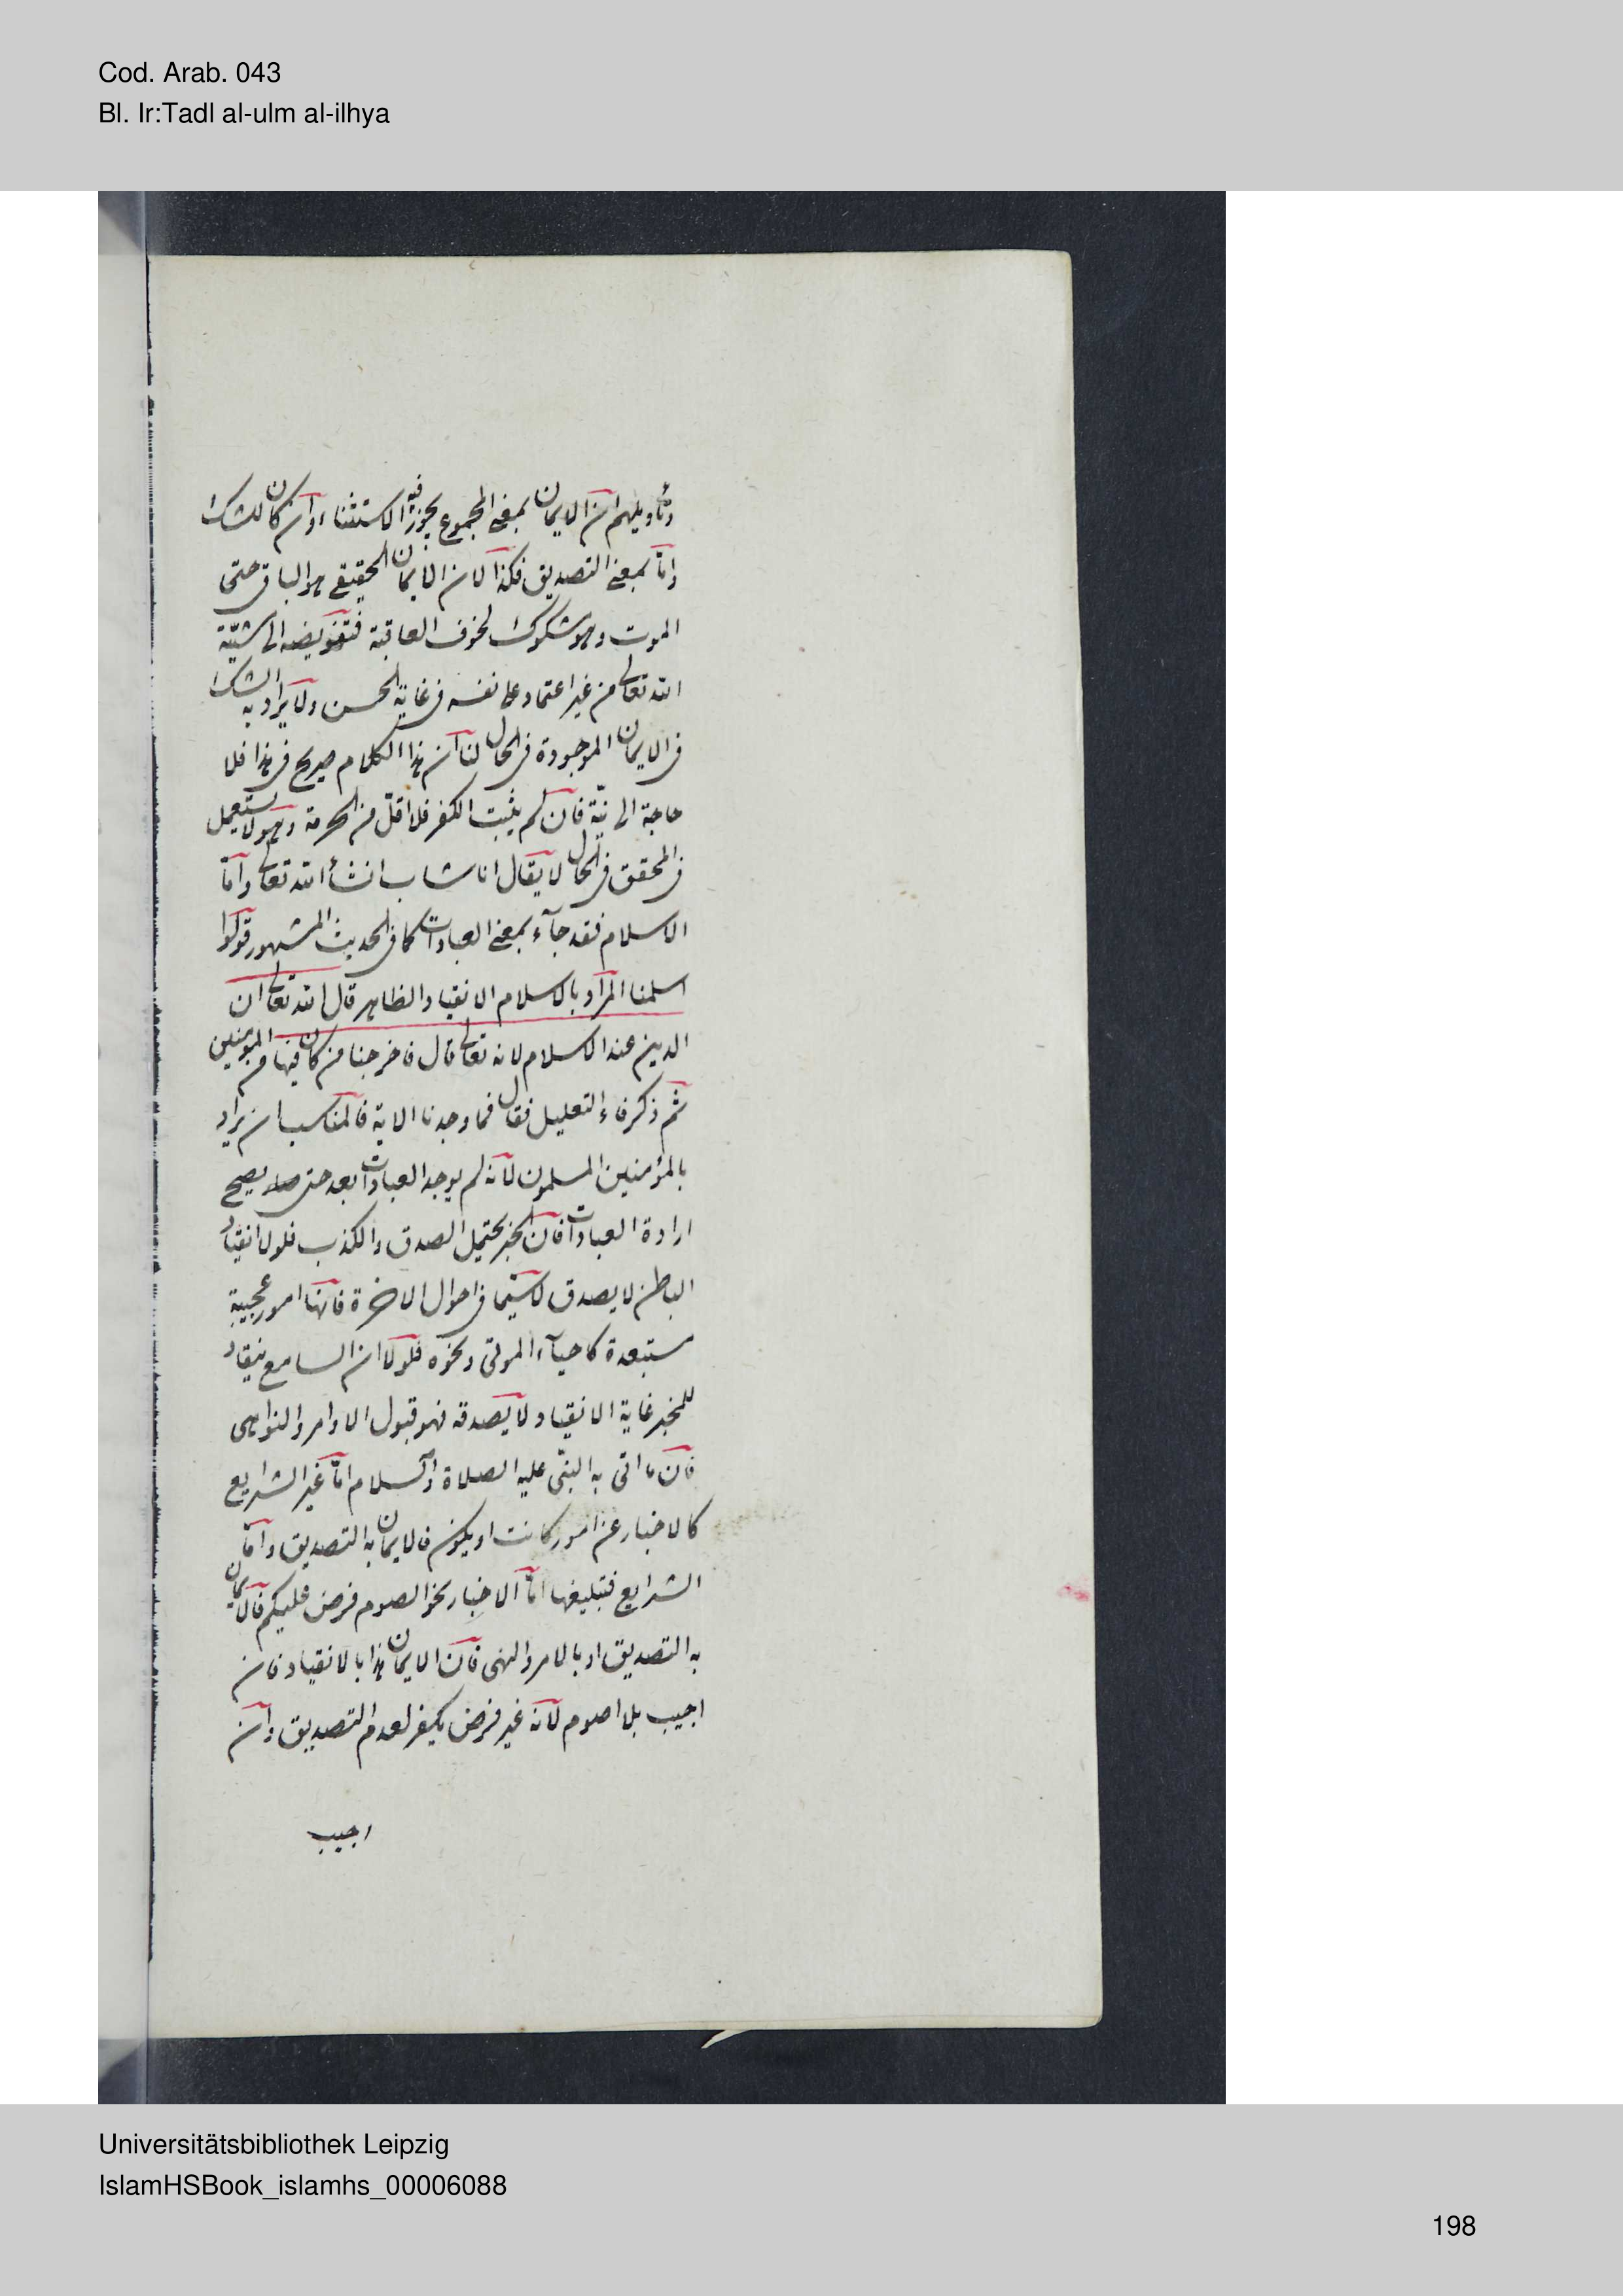 Cod. Arab. 043
Bl. Ir:Tadl al-ulm al-ilhya
وتأويلهم ان الايمان بمعنى المجموع يجوز فيه الاستثناء وان كان للشك
وامّا بمعنى التصديق فكذا لان الايمان الحقيقى هو الباقى حتى
الموت وهو مشكوك لخوف العاقبة فتفويضه الى مشيّة
الله تعالى من غير اعتماد على نفسه فى غاية الحسن ولا يراد به الشك
فى الايمان الموجودة فى الحال لنا ان هذا الكلام صريح فى هذا فلا
حاجة الى نيّة فان لم يثبت الكفر فلا اقلّ من الحرمة وهو لا يستعمل
فى المحقق فى الحال لا يقال انا شاب انشأ الله تعالى وامّا
الاسلام فقد جآء بمعنى العبادات كما فى الحديث المشهور قولوا
اسلمنا المراد بالاسلام الانقياد الظاهر قال الله تعالى ان
الدين عند الاسلام لانه تعالى قال فاخرجنا من كان فيها من المؤمنين
ثم ذكر فاء التعليل فقال فما وجدنا الاية فالمناسب ان يراد
بالمؤمنين المسلمون لانّه لم يوجد العبادات بعد حتى يصح
ارادة العبادات فان الخبر يحتمل الصدق والكذب فلولا انقياد
الباطن لا يصدق لا سيّما فى احوال الاخرة فانّها امور عجيبة
مستبعدة كاحيآء الموتى ونحوه فلولا ان السامع ينقاد
للمخبر غاية الانقياد لا يصدقه فهو قبول الاوامر والنواهى
فان ما اتى به النبىّ عليه الصلاة والسلام امّا غير الشرايع
كالاخبار عن امور كانت او يكون فالايمان به التصديق وامّا
الشرايع فتبليغها امّا الاخبار نحو الصوم فرض عليكم فالايمان
به التصديق او بالامر والنهى فان الايمان هذا بالانقياد فان
اجيب بلا اصوم لانّه غير فرض يكفر لعدم التصديق وان
اجيب
Universitätsbibliothek Leipzig
IslamHSBook_islamhs_00006088
198